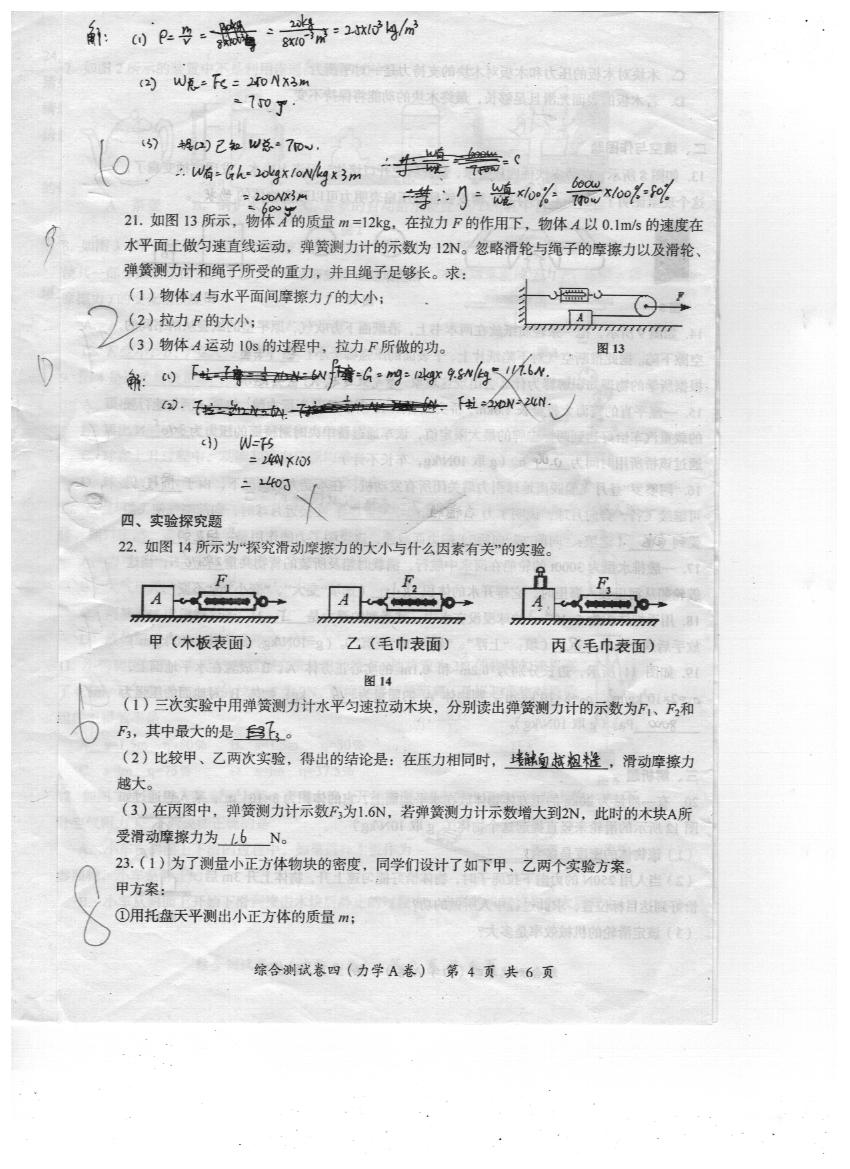 解: (1) ρ=m/V = 20kg/8×10⁻³m³ = 2.5×10³kg/m³
(2) W总=Fs=250N×3m
=750J.
(3) 据(2)已知 W总=750w.
10
∴W有=Gh=20kg×10N/kg×3m
=200N×3m
=600J
∴η=W有/W总×100%=600w/750w×100%=80%
21. 如图 13 所示，物体 A 的质量 m =12kg，在拉力 F 的作用下，物体 A 以 0.1m/s 的速度在
水平面上做匀速直线运动，弹簧测力计的示数为 12N。忽略滑轮与绳子的摩擦力以及滑轮、
弹簧测力计和绳子所受的重力，并且绳子足够长。求：
（1）物体 A 与水平面间摩擦力 f 的大小；
（2）拉力 F 的大小；
（3）物体 A 运动 10s 的过程中，拉力 F 所做的功。
F
A
图 13
2
解: (1) =G=mg=12kg×9.8N/kg=117.6N.
(2). F拉=2×12N=24N.
(3) W=FS
=24N×10s
=240J
四、实验探究题
22. 如图 14 所示为“探究滑动摩擦力的大小与什么因素有关”的实验。
A F₁ A F₂ A F₃
甲（木板表面） 乙（毛巾表面） 丙（毛巾表面）
图 14
（1）三次实验中用弹簧测力计水平匀速拉动木块，分别读出弹簧测力计的示数为F₁、F₂和
F₃，其中最大的是 F₃ 。
6
（2）比较甲、乙两次实验，得出的结论是：在压力相同时， 接触面越粗糙 ，滑动摩擦力
越大。
（3）在丙图中，弹簧测力计示数F₃为1.6N，若弹簧测力计示数增大到2N，此时的木块A所
受滑动摩擦力为 1.6 N。
23.（1）为了测量小正方体物块的密度，同学们设计了如下甲、乙两个实验方案。
8
甲方案：
①用托盘天平测出小正方体的质量 m；
综合测试卷四（力学A卷） 第 4 页 共 6 页